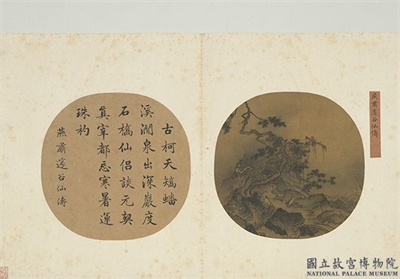 燕肅邃谷仙濤
古柯夭矯蟠
溪澗泉出深巖度
石橋仙侶談元契
真宰都忘寒暑運
珠杓
燕肅邃谷仙濤
國立故宮博物院
NATIONAL PALACE MUSEUM